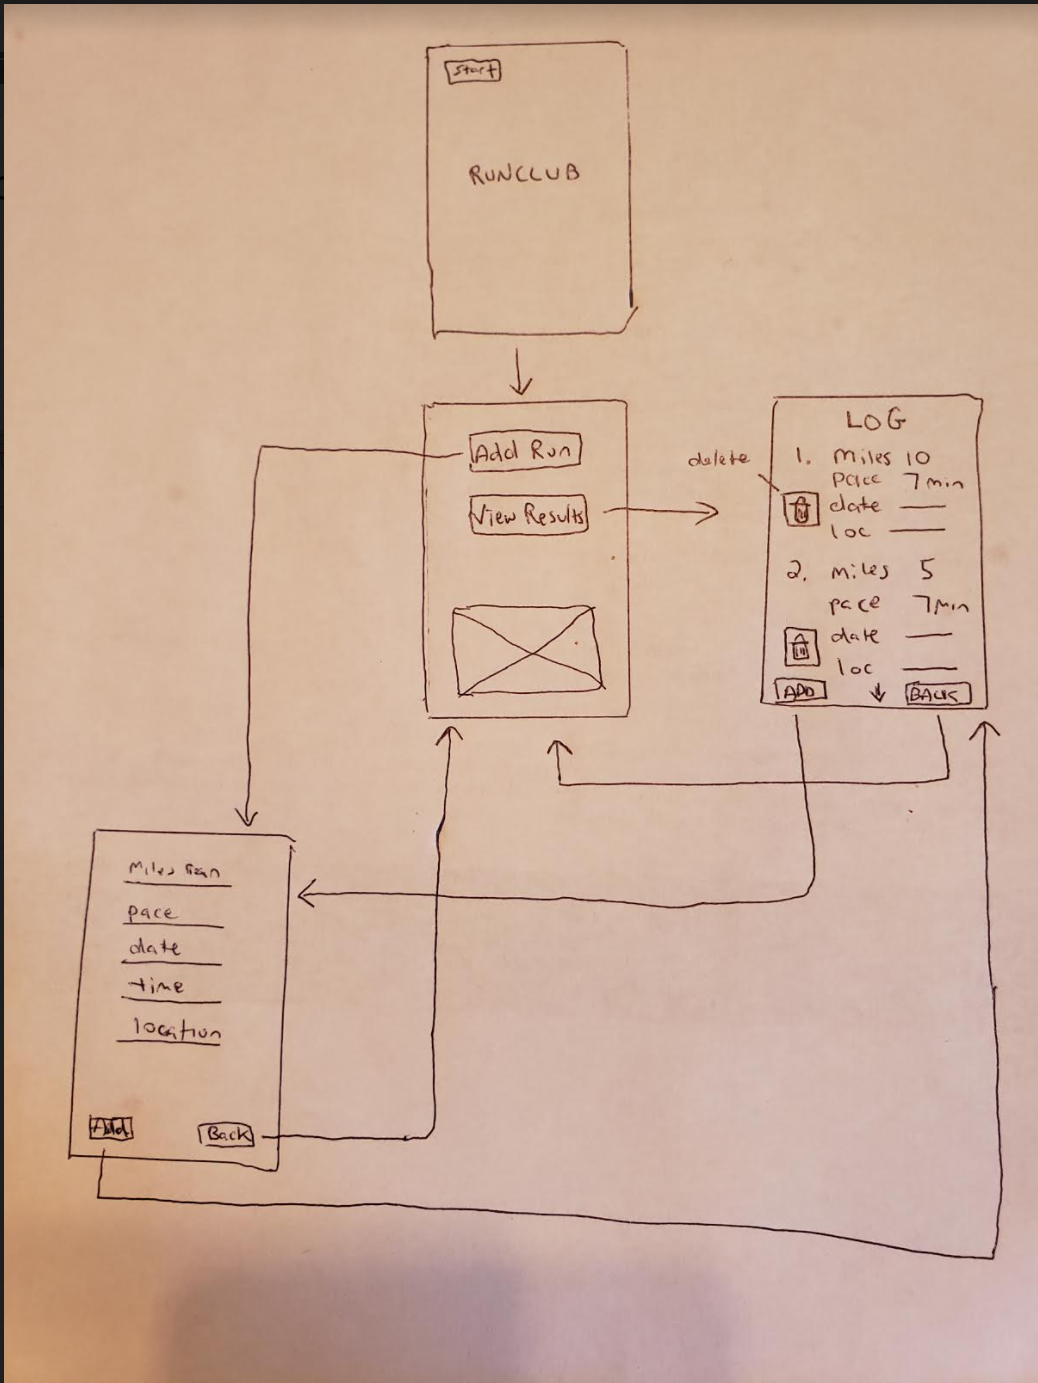 Start
RUNCLUB
Add Run
View Results
delete
LOG
1. Miles 10
pace 7min
date
loc
2. Miles 5
pace 7min
date
loc
ADD
BACK
Miles Ran
pace
date
time
location
Add
Back